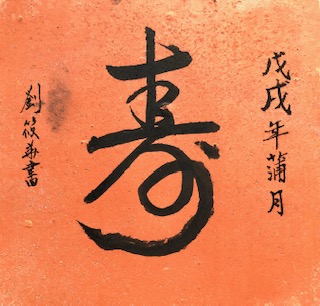 戊戌年蒲月
寿
劉筱華書